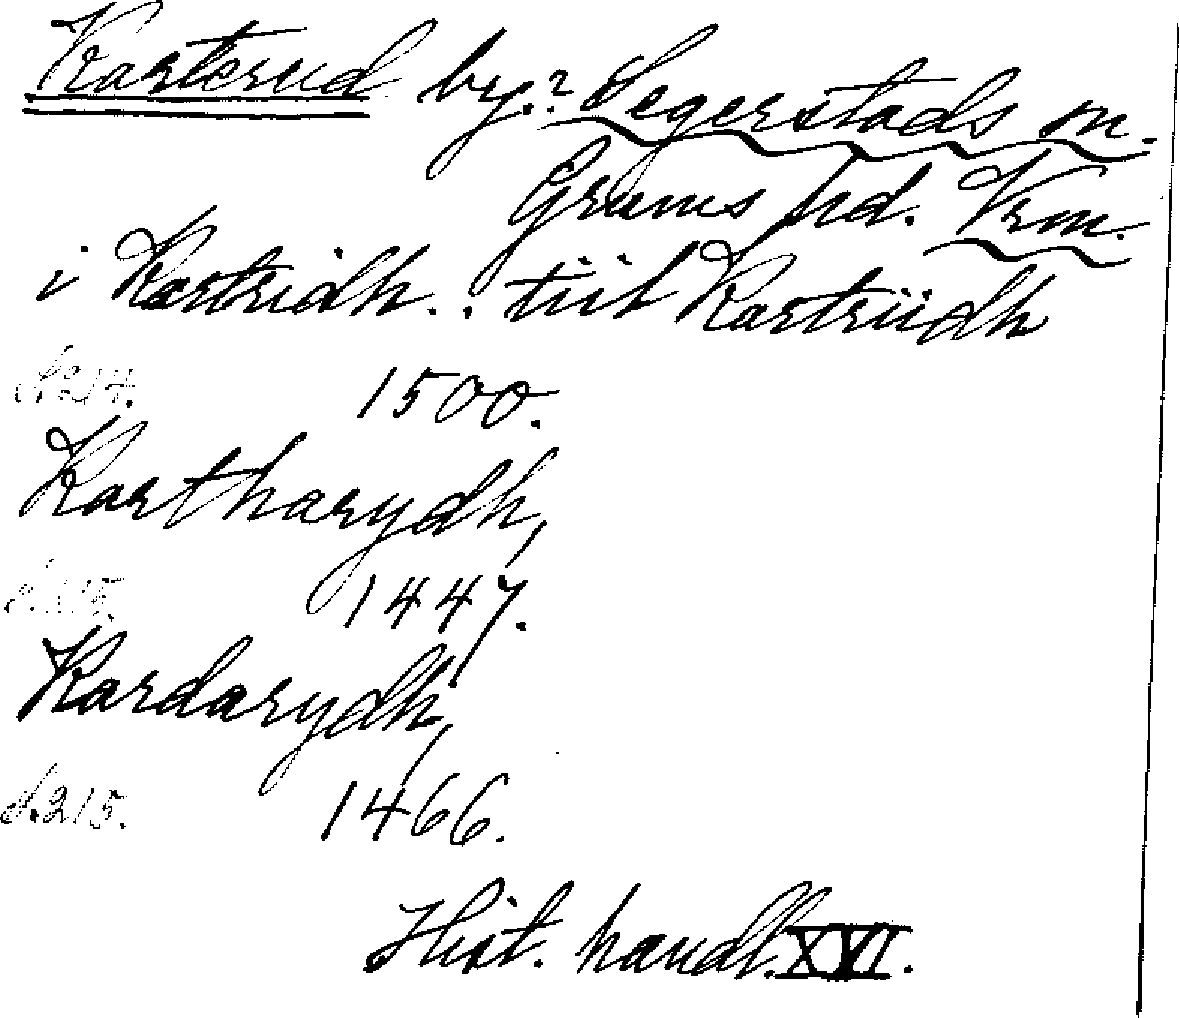 Karterud by.? Segerstads sn.
Grums hd. Vrm.
i Kartridh..: tiil Kartriidh
S. 214. 1500.
Kartharydh,
S. 215. 1447.
Kardarydh,
S. 215. 1466.
Hist. handl. XVI.